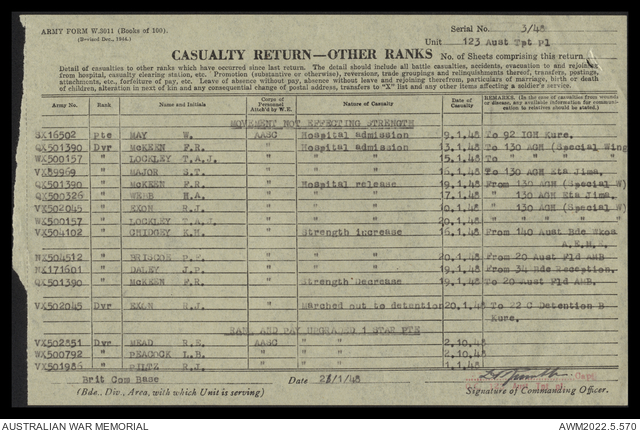 ARMY FORM W.3011 (Books of 100).
(Revised Dec., 1944.)
Serial No. 3/48
Unit 123 Aust Tpt Pl
CASUALTY RETURN—OTHER RANKS
No. of Sheets comprising this return
Detail of casualties to other ranks which have occurred since last return. The detail should include all battle casualties, accidents, evacuation to and rejoining
from hospital, casualty clearing station, etc. Promotion (substantive or otherwise), reversions, trade groupings and relinquishments thereof, transfers, postings,
attachments, etc., forfeiture of pay, etc. Leave of absence without pay, absence without leave and rejoining therefrom, particulars of marriage, birth or death
of children, alteration in next of kin and any consequential change of postal address, transfers to "X" list and any other items affecting a soldier's service.
Army No. Rank Name and Initials Corps of Personnel Attach'd by W.E. Nature of Casualty Date of Casualty REMARKS.
MOVEMENT NOT EFFECTING STRENGTH
SX16502 Pte MAY W. AASC Hospital admission 9.1.48 To 92 IGH Kure.
QX501390 Dvr McKEEN F.R. " Hospital admission 13.1.48 To 130 AGH (Special Wing
WX500157 " LOCKLEY T.A.J. " " " 15.1.48 To " " " "
VX89969 " MAJOR S.T. " " " 16.1.48 To 130 AGH Eta Jima.
QX501390 " McKEEN F.R. " Hospital release 19.1.48 From 130 AGH (Special W)
QX500326 " WEBB H.A. " " " 17.1.48 " 130 AGH Eta Jima.
VX502045 " EXON R.J. " " " 10.1.48 " 130 AGH (Special W)
WX500157 " LOCKLEY T.A.J. " " " 20.1.48 " " " "
VX504102 " CHIDGEY K.H. " Strength increase 6.1.48 From 140 Aust Bde Wksp
A.E.M.E.
NX504512 " BRISCOE P.F. " " " 20.1.48 From 20 Aust Fld AMB.
NX171601 " DALEY J.P. " " " 19.1.48 From 34 Bde Reception.
QX501390 " McKEEN F.R. " Strength Decrease 19.1.48 To 20 Aust Fld AMB.
VX502045 Dvr EXON R.J. " Marched out to detention 20.1.48 To 22 C Detention B
Kure.
RANK AND PAY UPGRADED 1 STAR PTE
VX502851 Dvr MEAD R.E. AASC 2.10.48
WX500792 " PEACOCK L.B. " 2.10.48
VX501986 " PILTZ R.J. " 1.1.48
Brit Com Base Date 21/1/48 Capt
(Bde., Div., Area, with which Unit is serving) Signature of Commanding Officer.
AUSTRALIAN WAR MEMORIAL AWM2022.5.570